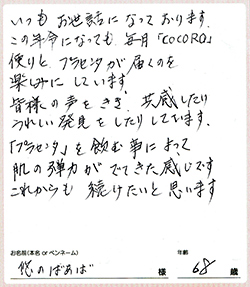 いつもお世話になっております.
この年令になっても 毎月「COCORO」
便りと、プラセンタが届くのを
楽しみにしています
皆様の声をきき、共感したり
うれしい発見をしたりしてます.
「プラセンタ」を飲む事によって
肌の弾力がでてきた感じです
これからも 続けたいと思います
お名前(本名 or ペンネーム) 年齢
のばあば 様 68 歳